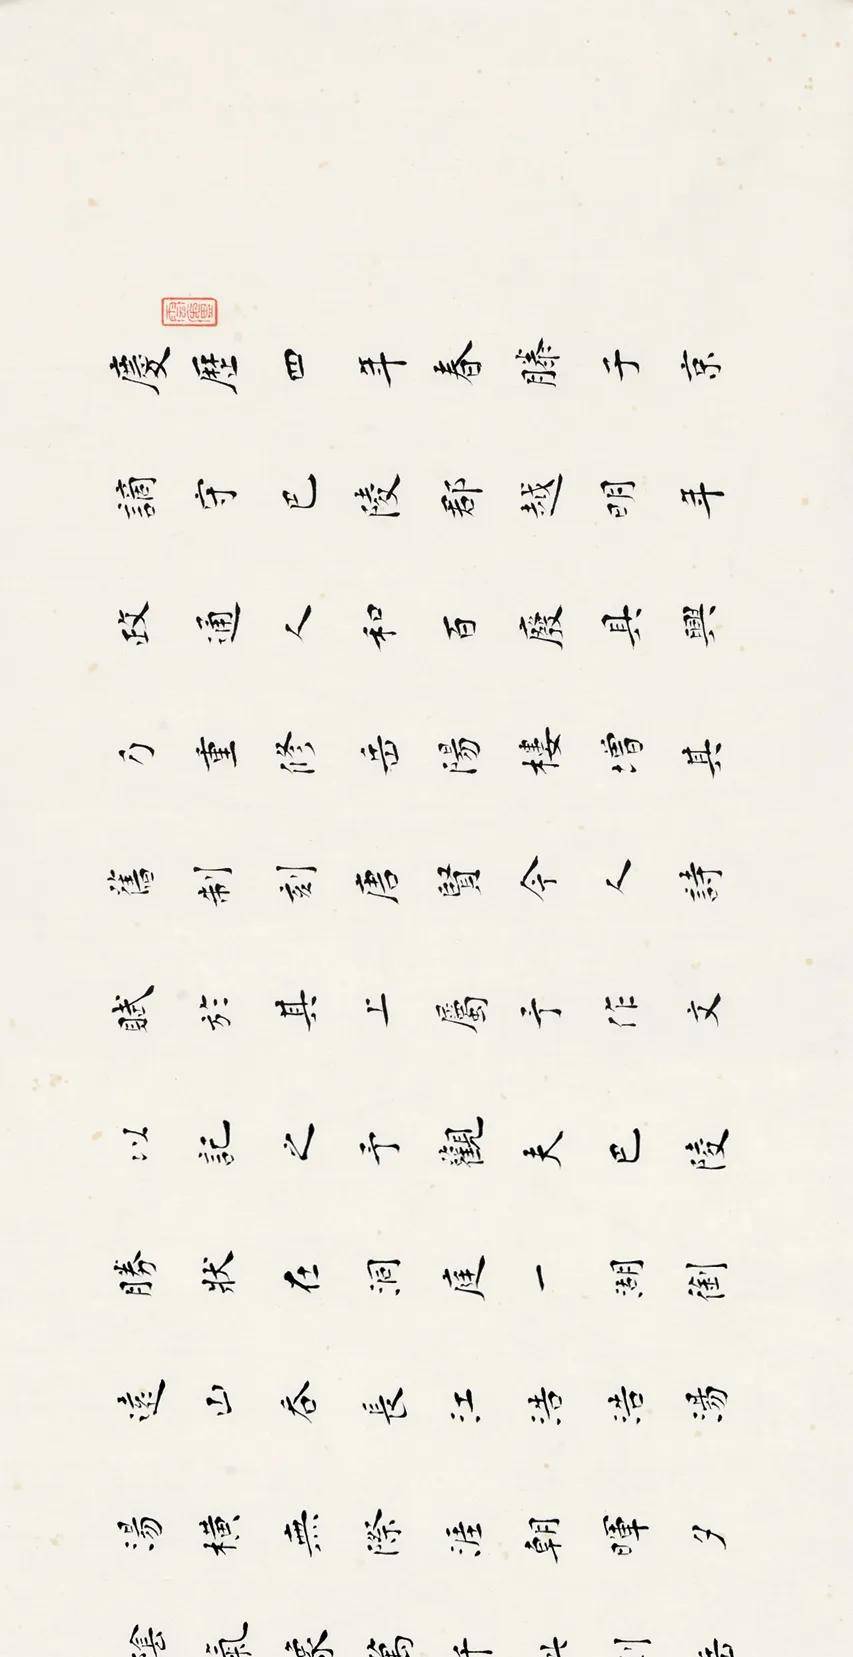 慶歷四年春滕子京
謫守巴陵郡越明年
政通人和百廢具興
乃重修岳陽樓增其
舊制刻唐賢今人詩
賦於其上屬予作文
以記之予觀夫巴陵
勝狀在洞庭一湖銜
遠山吞長江浩浩湯
湯橫無際涯朝暉夕
陰氣象萬千此則岳